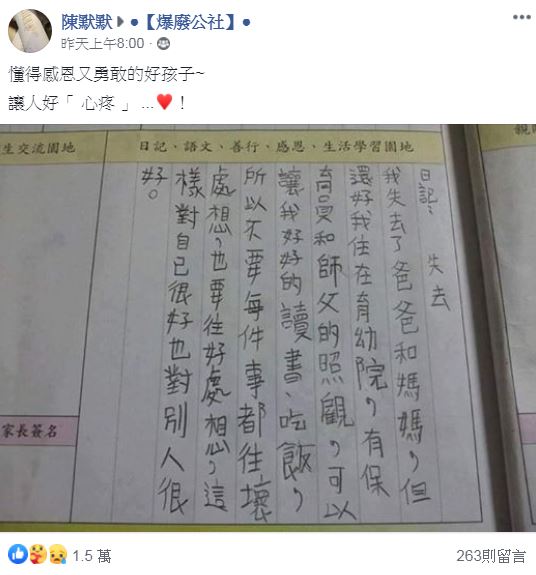 陳默默 ▸ ●【爆廢公社】●
昨天上午8:00 ·
懂得感恩又勇敢的好孩子~
讓人好「 心疼 」 ...❤️！
生交流園地
日記、語文、善行、感恩、生活學習園地
日記：失去
我失去了爸爸和媽媽，但
還好我住在育幼院，有保
育員和師父的照觀，可以
讓我好好的讀書、吃飯，
所以不要每件事都往壞
處想，也要往好處想，這
樣對自己很好也對別人很
好。
家長簽名
1.5 萬
263則留言